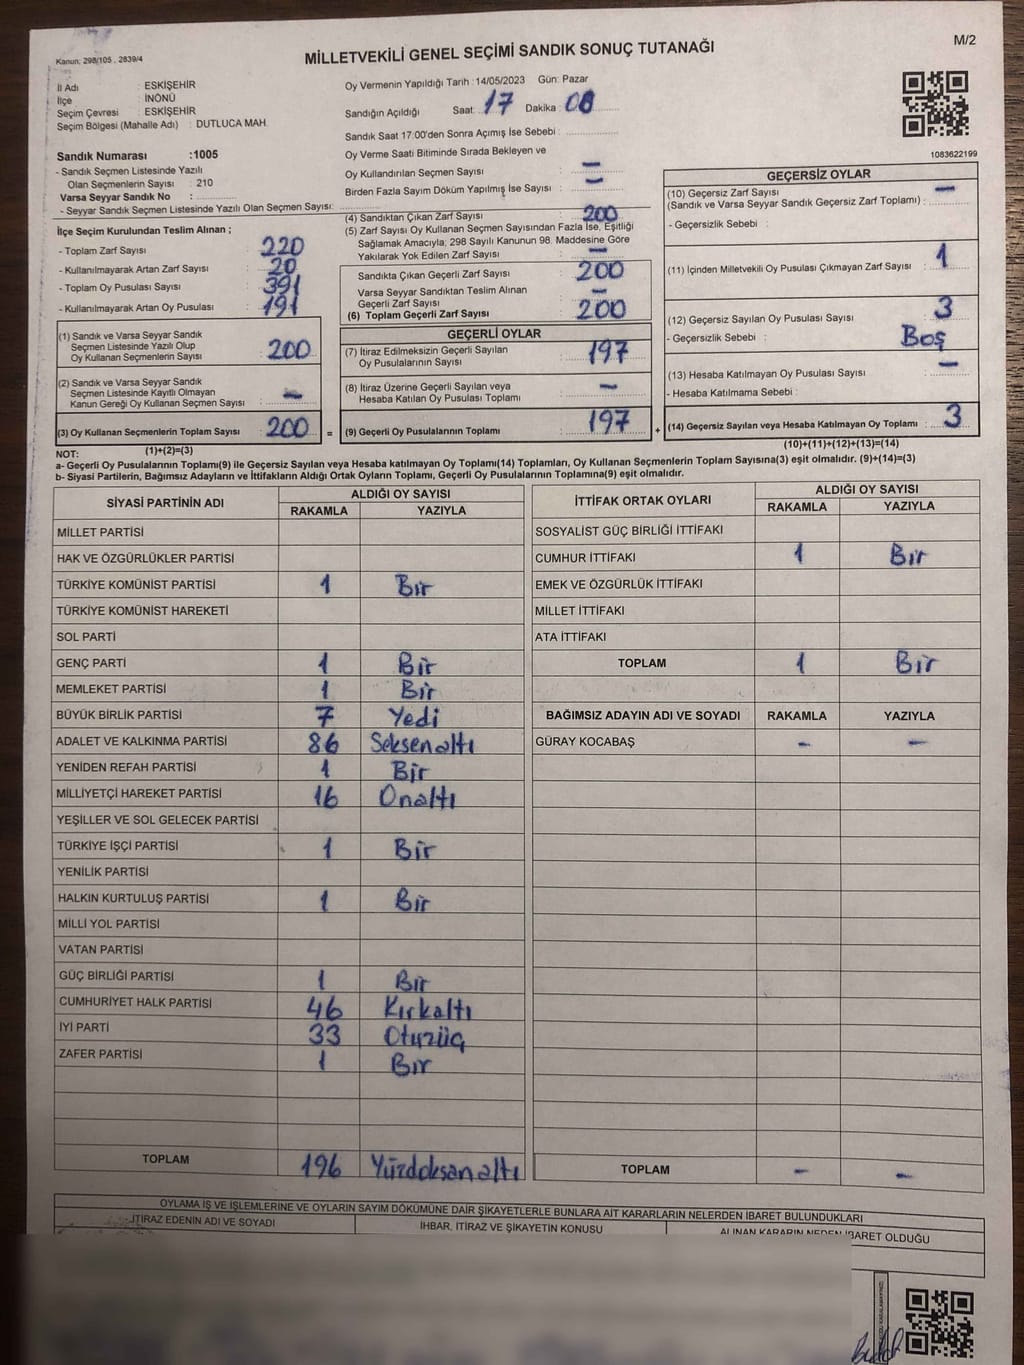 Kanun: 298/105 , 2839/4
MİLLETVEKİLİ GENEL SEÇİMİ SANDIK SONUÇ TUTANAĞI
M/2
İl Adı : ESKİŞEHİR
İlçe : İNÖNÜ
Seçim Çevresi : ESKİŞEHİR
Seçim Bölgesi (Mahalle Adı) : DUTLUCA MAH.
Oy Vermenin Yapıldığı Tarih : 14/05/2023 Gün: Pazar
Sandığın Açıldığı Saat: 17 Dakika : 08
Sandık Saat 17:00'den Sonra Açımış İse Sebebi :
Sandık Numarası :1005
- Sandık Seçmen Listesinde Yazılı
Olan Seçmenlerin Sayısı : 210
Varsa Seyyar Sandık No :
- Seyyar Sandık Seçmen Listesinde Yazılı Olan Seçmen Sayısı:
Oy Verme Saati Bitiminde Sırada Bekleyen ve
Oy Kullandırılan Seçmen Sayısı : —
Birden Fazla Sayım Döküm Yapılmış İse Sayısı : —
1083622199
İlçe Seçim Kurulundan Teslim Alınan ;
- Toplam Zarf Sayısı : 220
- Kullanılmayarak Artan Zarf Sayısı : 20
- Toplam Oy Pusulası Sayısı : 391
- Kullanılmayarak Artan Oy Pusulası : 191
(1) Sandık ve Varsa Seyyar Sandık
Seçmen Listesinde Yazılı Olup
Oy Kullanan Seçmenlerin Sayısı : 200
(2) Sandık ve Varsa Seyyar Sandık
Seçmen Listesinde Kayıtlı Olmayan
Kanun Gereği Oy Kullanan Seçmen Sayısı : —
(3) Oy Kullanan Seçmenlerin Toplam Sayısı : 200
(1)+(2)=(3)
(4) Sandıktan Çıkan Zarf Sayısı : 200
(5) Zarf Sayısı Oy Kullanan Seçmen Sayısından Fazla İse, Eşitliği
Sağlamak Amacıyla; 298 Sayılı Kanunun 98. Maddesine Göre
Yakılarak Yok Edilen Zarf Sayısı : —
Sandıkta Çıkan Geçerli Zarf Sayısı : 200
Varsa Seyyar Sandıktan Teslim Alınan
Geçerli Zarf Sayısı : —
(6) Toplam Geçerli Zarf Sayısı : 200
GEÇERLİ OYLAR
(7) İtiraz Edilmeksizin Geçerli Sayılan
Oy Pusulalarının Sayısı : 197
(8) İtiraz Üzerine Geçerli Sayılan veya
Hesaba Katılan Oy Pusulası Toplamı : —
= (9) Geçerli Oy Pusulalarının Toplamı : 197
GEÇERSİZ OYLAR
(10) Geçersiz Zarf Sayısı —
(Sandık ve Varsa Seyyar Sandık Geçersiz Zarf Toplamı) :
- Geçersizlik Sebebi :
(11) İçinden Milletvekili Oy Pusulası Çıkmayan Zarf Sayısı : 1
(12) Geçersiz Sayılan Oy Pusulası Sayısı : 3
- Geçersizlik Sebebi : Boş
(13) Hesaba Katılmayan Oy Pusulası Sayısı : —
- Hesaba Katılmama Sebebi :
+ (14) Geçersiz Sayılan veya Hesaba Katılmayan Oy Toplamı : 3
(10)+(11)+(12)+(13)=(14)
NOT:
a- Geçerli Oy Pusulalarının Toplamı(9) ile Geçersiz Sayılan veya Hesaba katılmayan Oy Toplamı(14) Toplamları, Oy Kullanan Seçmenlerin Toplam Sayısına(3) eşit olmalıdır. (9)+(14)=(3)
b- Siyasi Partilerin, Bağımsız Adayların ve İttifakların Aldığı Ortak Oyların Toplamı, Geçerli Oy Pusulalarının Toplamına(9) eşit olmalıdır.
SİYASİ PARTİNİN ADI ALDIĞI OY SAYISI
RAKAMLA YAZIYLA
MİLLET PARTİSİ
HAK VE ÖZGÜRLÜKLER PARTİSİ
TÜRKİYE KOMÜNİST PARTİSİ 1 Bir
TÜRKİYE KOMÜNİST HAREKETİ
SOL PARTİ
GENÇ PARTİ 1 Bir
MEMLEKET PARTİSİ 1 Bir
BÜYÜK BİRLİK PARTİSİ 7 Yedi
ADALET VE KALKINMA PARTİSİ 86 Seksenaltı
YENİDEN REFAH PARTİSİ 1 Bir
MİLLİYETÇİ HAREKET PARTİSİ 16 Onaltı
YEŞİLLER VE SOL GELECEK PARTİSİ
TÜRKİYE İŞÇİ PARTİSİ 1 Bir
YENİLİK PARTİSİ
HALKIN KURTULUŞ PARTİSİ 1 Bir
MİLLİ YOL PARTİSİ
VATAN PARTİSİ
GÜÇ BİRLİĞİ PARTİSİ 1 Bir
CUMHURİYET HALK PARTİSİ 46 Kırkaltı
İYİ PARTİ 33 Otuzüç
ZAFER PARTİSİ 1 Bir
TOPLAM 196 Yüzdoksanaltı
İTTİFAK ORTAK OYLARI ALDIĞI OY SAYISI
RAKAMLA YAZIYLA
SOSYALİST GÜÇ BİRLİĞİ İTTİFAKI
CUMHUR İTTİFAKI 1 Bir
EMEK VE ÖZGÜRLÜK İTTİFAKI
MİLLET İTTİFAKI
ATA İTTİFAKI
TOPLAM 1 Bir
BAĞIMSIZ ADAYIN ADI VE SOYADI RAKAMLA YAZIYLA
GÜRAY KOCABAŞ — —
TOPLAM — —
OYLAMA İŞ VE İŞLEMLERİNE VE OYLARIN SAYIM DÖKÜMÜNE DAİR ŞİKAYETLERLE BUNLARA AİT KARARLARIN NELERDEN İBARET BULUNDUKLARI
İTİRAZ EDENİN ADI VE SOYADI İHBAR, İTİRAZ VE ŞİKAYETİN KONUSU ALINAN KARARIN NEDEN İBARET OLDUĞU